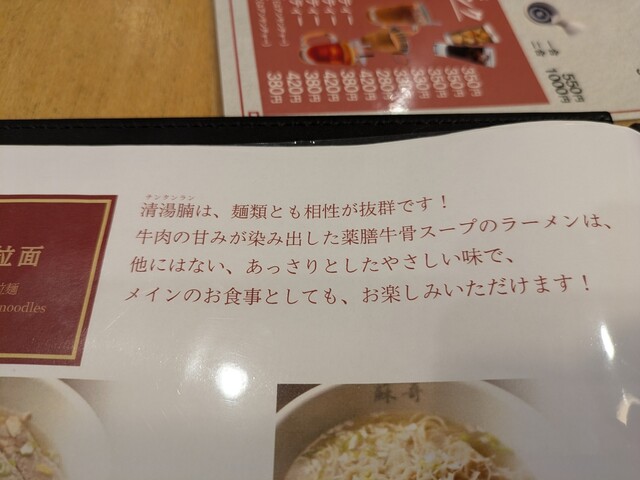 ンク
ティー
ティー
(ロンツァンティー)
350円
350円
330円
330円
280円
420円
380円
380円
420円
380円
一合 550円
二合 1000円
チンタンラン
清湯腩は、麺類とも相性が抜群です！
牛肉の甘みが染み出した薬膳牛骨スープのラーメンは、
他にはない、あっさりとしたやさしい味で、
メインのお食事としても、お楽しみいただけます！
拉面
拉麺
noodles
蘇哥